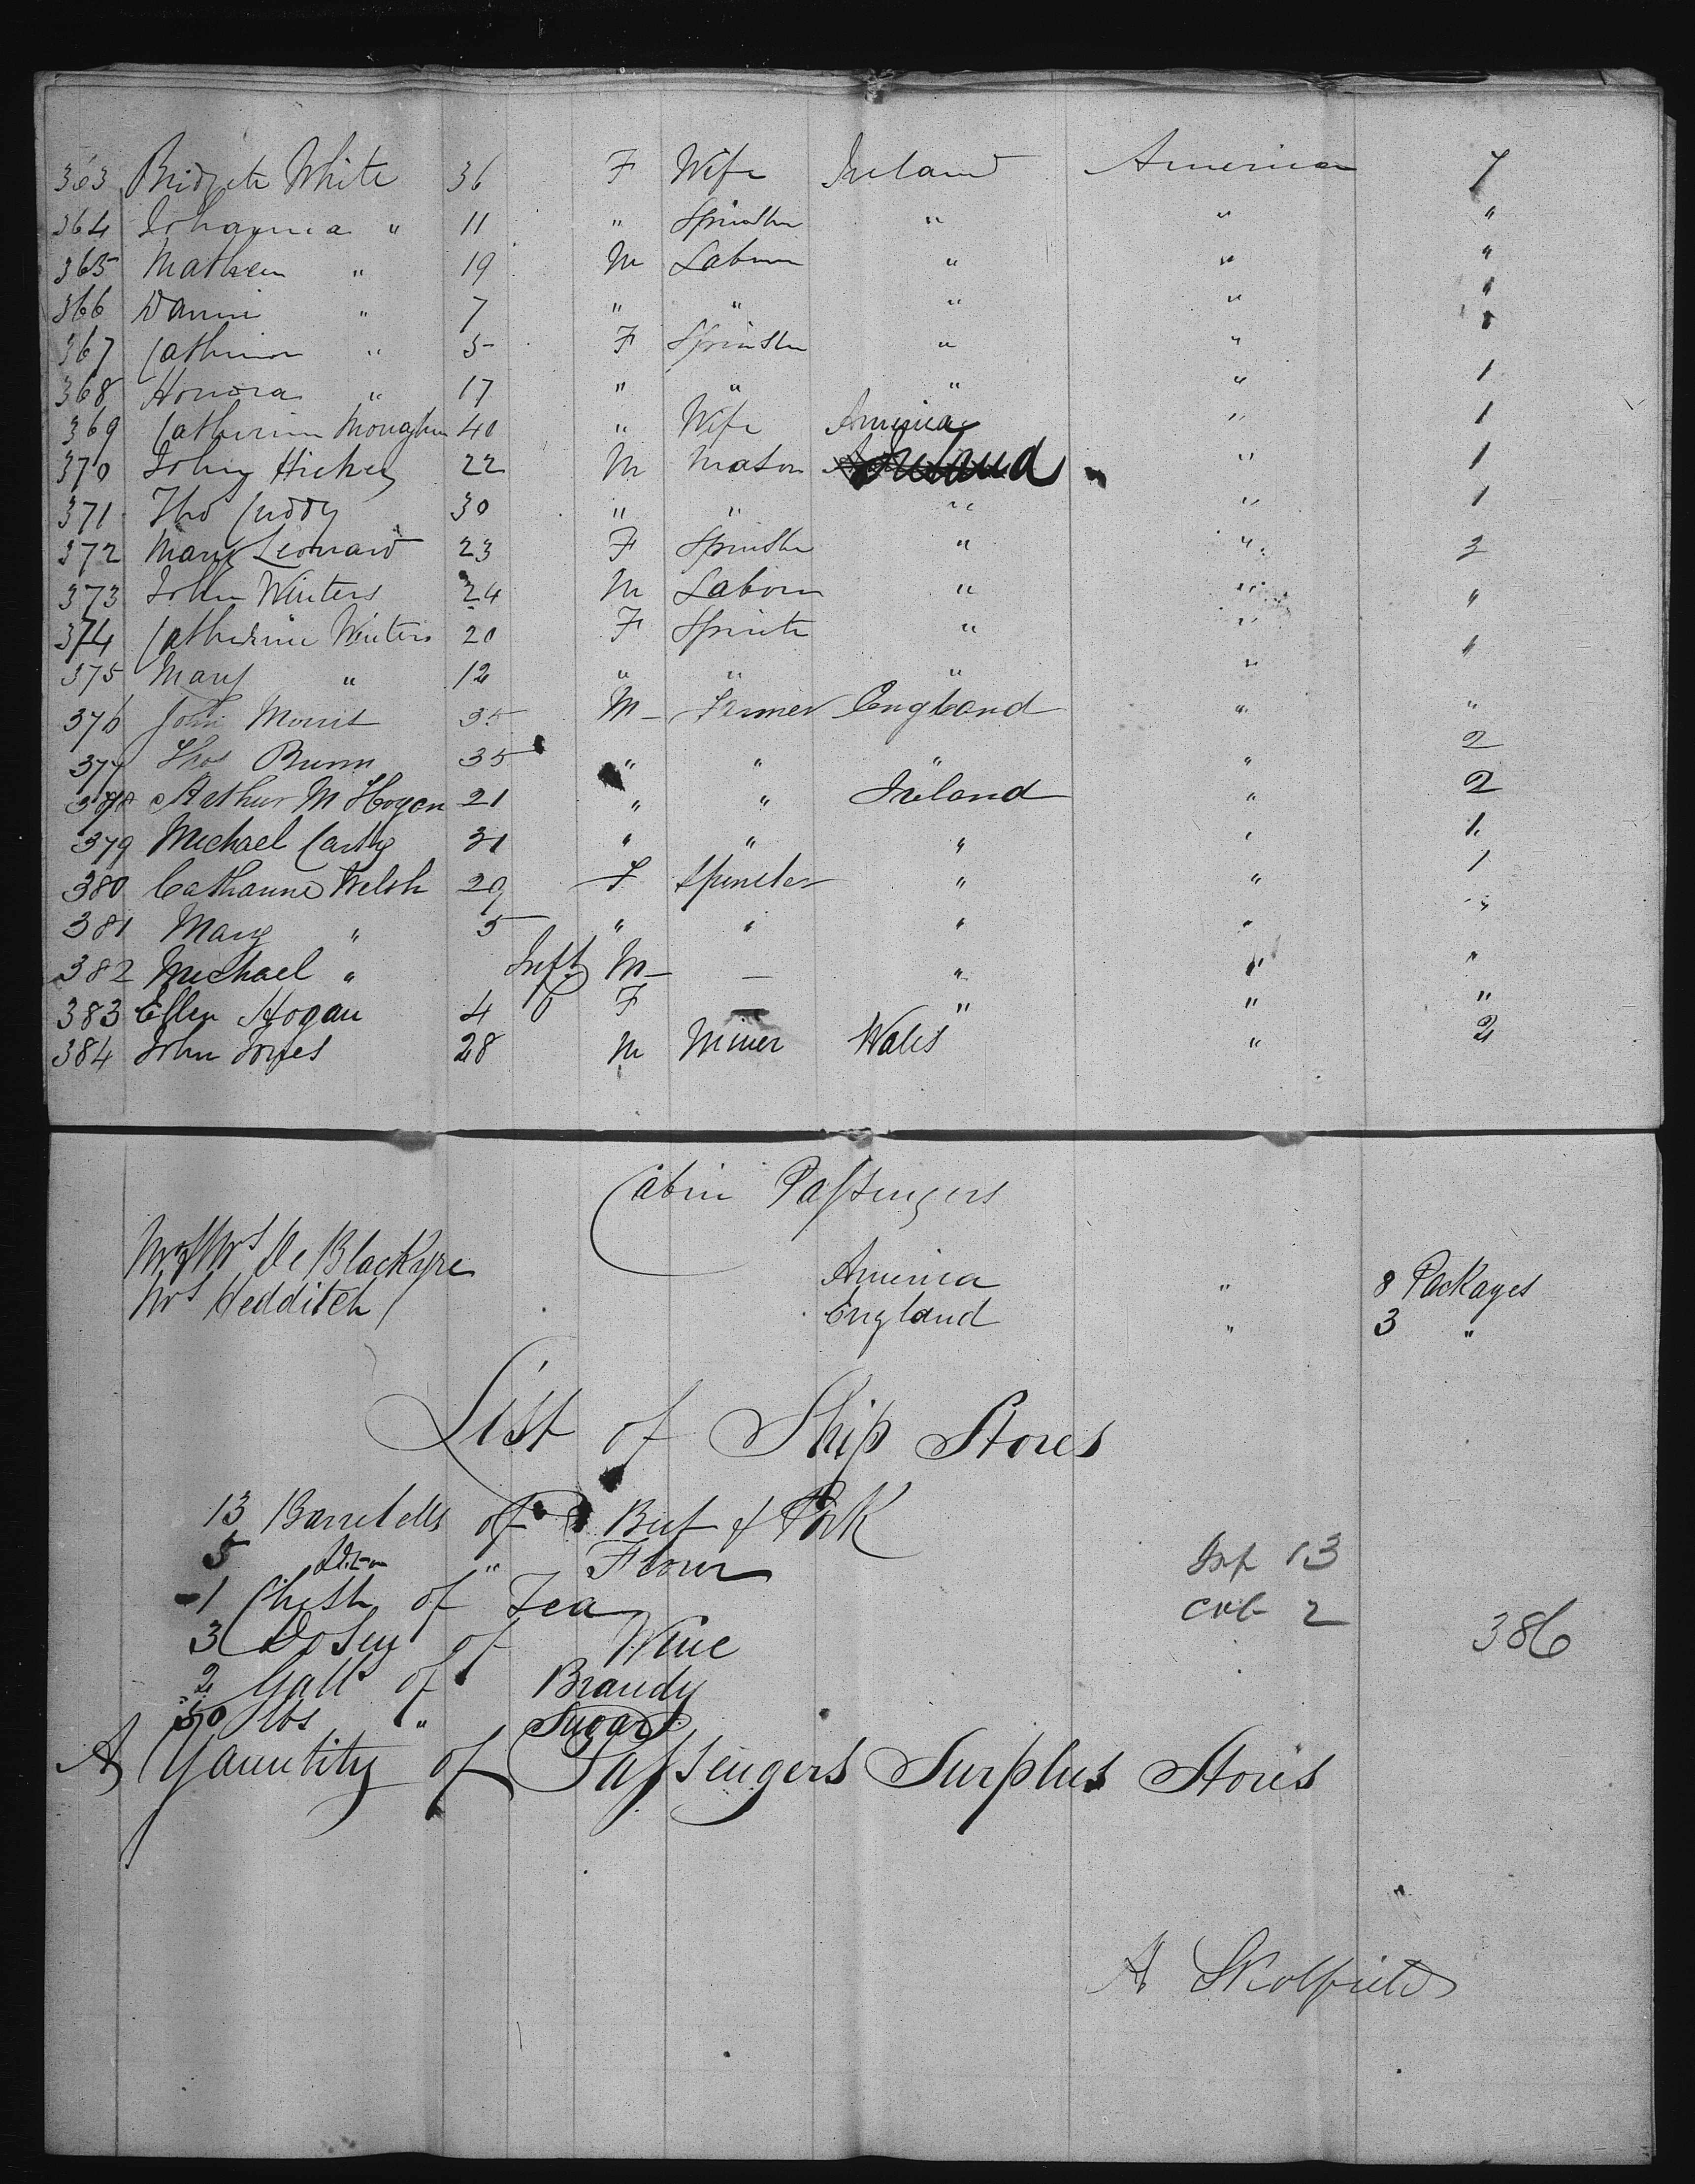 363 Bridgett White 36 F Wife Ireland America 7
364 Johanna " 11 " Spinster " " "
365 Mathew " 19 M Labour " " "
366 " 7 " " " " "
367 Catherine " 5 F Spinster " "
368 Honora " 17 " " " " 1
369 Catherine Monaghan 40 " Wife America " 1
370 John Hickey 22 M Mason Ireland " 1
371 Tho Cuddy 30 " " " " 1
372 Mary Leonard 23 F Spinster " " 2
373 John Winters 24 M Labour " " "
374 Catherine Winters 20 F Spinster " "
375 Mary " 12 " " " "
376 John Morris 35 M Farmer England " "
377 Thos Bunn 35 " " " " 2
378 Arthur M Hogan 21 " " Ireland " 2
379 Michael Carthy 31 " " " " 1
380 Catharine Welsh 29 F Spinster " " 1
381 Mary " 5 " " " " "
382 Michael " Inft M — " " "
383 Ellen Hogan 4 F — " " "
384 John Jones 28 M Miner Wales " 2
Cabin Passengers
Mr & Mrs De Blackyre America " 8 Packages
Mrs Hedditch England " 3 "
List of Ship Stores
13 Barrells of Beef & Pork
5 Ditto " Flour
1 Chest of Tea
3 Dosen of Wine
2 Galls of Brandy
50 lbs " Sugar
Inf 13
Cab 2
386
A Qauntity of Passengers Surplus Stores
A Skolfield